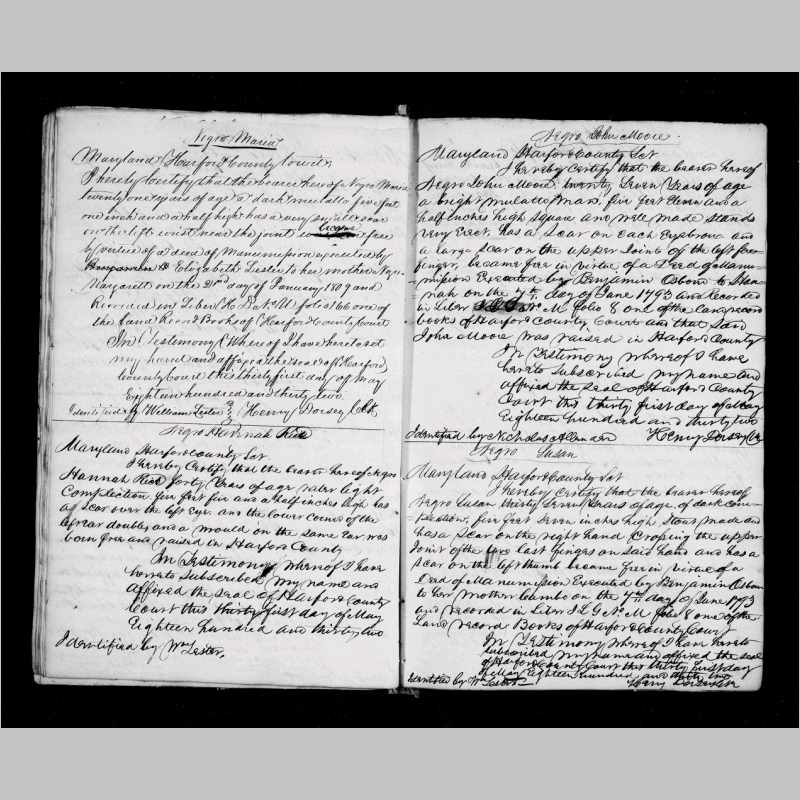 Negro Maria
Maryland Harford County Court,
I hereby Certify that the bearer hereof Negro Maria
twenty one years of age a dark mulatto five feet
one inch and a half high has a very small scar
on the left wrist near the joint became free
by virtue of a deed of Manumission executed by
Elizabeth Leslie to her mother
Margarett on the 21st day of January 1809 and
Recorded in Liber H D No U folio 166 one of
the Land Record Books of Harford County Court
In Testimony Whereof I have hereto set
my hand and affixed the seal of Harford
County Court this thirty first day of May
Eighteen hundred and thirty two.
Identified by William Lester } Henry Dorsey Clk
Negro Hannah Rice
Maryland Harford County Sct
I hereby Certify that the bearer hereof Negro
Hannah Rice forty Years of age rater light
Complection five feet five and a half inches high has
a Scar over the left Eye and the lower corner of the
left ear doubles and a would on the same Ear was
born free and raised in Harford County
In Testimony whereof I have
hereto Subscribed my name and
affixed the seal of Harford County
Court this thirty first day of May
Eighteen hundred and thirty two
Identified by Wm Lester,
Negro John Moore
Maryland Harford County Sct
I hereby Certify that the bearer hereof
Negro John Moore twenty Seven Years of age
a bright mulatto man, five feet Eleven and a
half inches high Square and well made stands
very Erect, has a Scar on each Eyebrow and
a large Scar on the upper Joint of the left fore
finger, became free in virtue of a Deed of Manu-
mission Executed by Benjamin Osborn to Han-
nah on the 7th day of June 1793 and Recorded
in Liber No M folio 8 one of the Land record
books of Harford County Court and that said
John Moore was raised in Harford County
In Testimony whereof I have
hereto Subscribed my name and
affixed the Seal of Harford County
Court this thirty first day of May
Eighteen hundred and thirty two
Identified by Nicholas Henry Dorsey Clk
Negro Susan
Maryland Harford County Sct
I hereby Certify that the bearer hereof
Negro Susan thirty Seven Years of age, of dark com-
plection, five feet Seven inches high, Stout made and
has a Scar on the right hand Croping the upper
Joint of the two last fingers on said hand and has a
Scar on the left thumb became free in virtue of a
Deed of Manumission Executed by Benjamin Osborn
to her mother on the 7th day of June 1793
and recorded in Liber J L G No M folio 8 one of the
Land record Books of Harford County Court
In Testimony whereof I have hereto
subscribed my name and affixed the seal
of Harford County Court this thirty first day
of May Eighteen hundred and thirty two
Identified by Wm Lester Henry Dorsey Clk